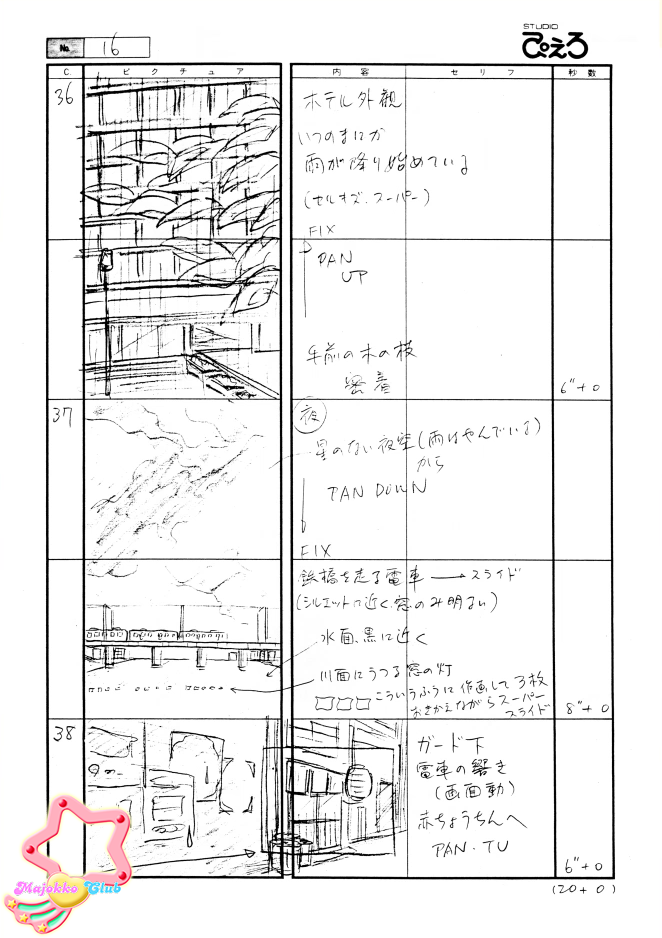 STUDIO
ぴえろ
No. 16
C. ピクチュア 内容 セリフ 秒数
36
ホテル外観
いつのまにか
雨が降り始めている
(セルオズ.スーパー)
FIX
PAN
UP
手前の木の枝
密着
6"+0
37
夜
星のない夜空(雨はやんでいる)
から
PAN DOWN
FIX
鉄橋を走る電車 → スライド
(シルエットに近く、窓のみ明るい)
水面、黒に近く
川面にうつる窓の灯
こういうふうに作画して3枚
おきかえながらスーパー
スライド
8"+0
38
ガード下
電車の響き
(画面動)
赤ちょうちんへ
PAN・TU
6"+0
(20+0)
Majokko Club